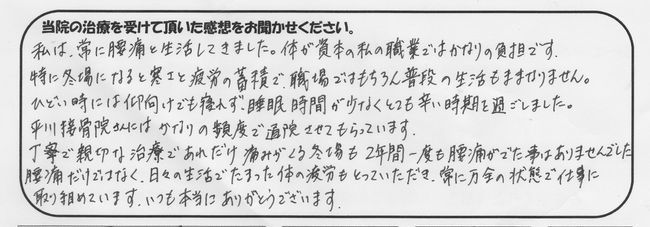 当院の治療を受けて頂いた感想をお聞かせください。
私は、常に腰痛と生活してきました。体が資本の私の職業ではかなりの負担です。
特に冬場になると寒さと疲労の蓄積で、職場ではもちろん普段の生活もままなりません。
ひどい時には仰向けでも寝れず、睡眠時間が少なくとても辛い時期を過ごしました。
平川接骨院さんにはかなりの頻度で通院させてもらっています。
丁寧で親切な治療であれだけ痛みがくる冬場も2年間一度も腰痛がでた事はありませんでした
腰痛だけではなく、日々の生活でたまった体の疲労もとっていただき、常に万全の状態で仕事に
取り組めています。いつも本当にありがとうございます。